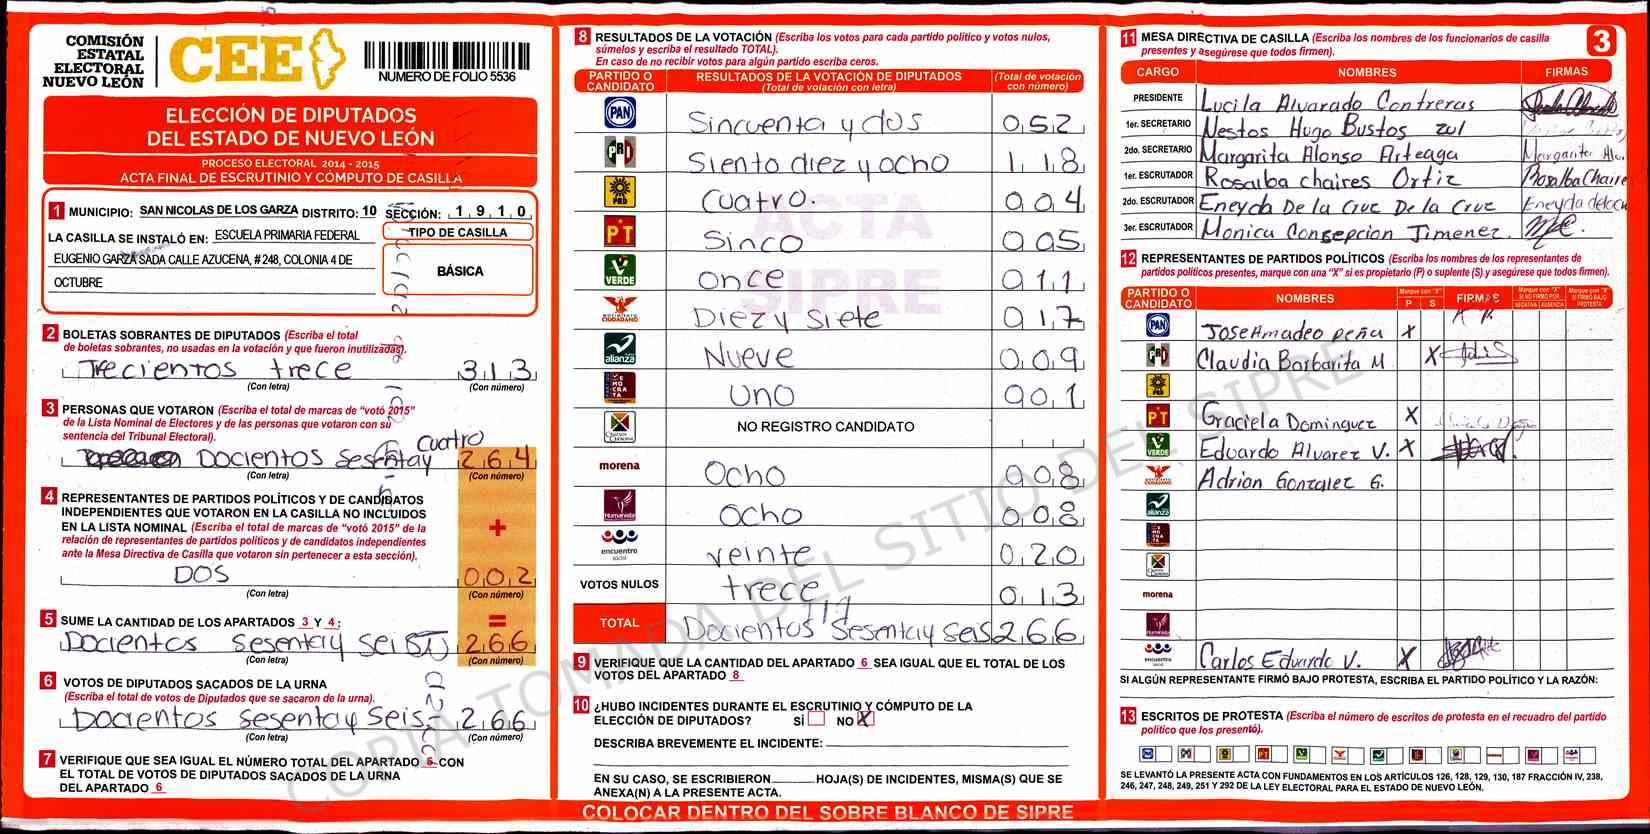 COMISIÓN
ESTATAL
ELECTORAL
NUEVO LEÓN
CEE
NUMERO DE FOLIO 5536
ELECCIÓN DE DIPUTADOS
DEL ESTADO DE NUEVO LEÓN
PROCESO ELECTORAL 2014 - 2015
ACTA FINAL DE ESCRUTINIO Y CÓMPUTO DE CASILLA
1 MUNICIPIO: SAN NICOLAS DE LOS GARZA DISTRITO: 10 SECCIÓN: 1910
LA CASILLA SE INSTALÓ EN: ESCUELA PRIMARIA FEDERAL
EUGENIO GARZA SADA CALLE AZUCENA, # 248, COLONIA 4 DE
OCTUBRE
TIPO DE CASILLA
BÁSICA
2 BOLETAS SOBRANTES DE DIPUTADOS (Escriba el total
de boletas sobrantes, no usadas en la votación y que fueron inutilizadas).
Trecientos trece 313
(Con letra) (Con número)
3 PERSONAS QUE VOTARON (Escriba el total de marcas de "votó 2015"
de la Lista Nominal de Electores y de las personas que votaron con su
sentencia del Tribunal Electoral).
cuatro
Docientos Sesentay 264
(Con letra) (Con número)
4 REPRESENTANTES DE PARTIDOS POLÍTICOS Y DE CANDIDATOS
INDEPENDIENTES QUE VOTARON EN LA CASILLA NO INCLUIDOS
EN LA LISTA NOMINAL (Escriba el total de marcas de "votó 2015" de la
relación de representantes de partidos políticos y de candidatos independientes
ante la Mesa Directiva de Casilla que votaron sin pertenecer a esta sección).
+
DOS 002
(Con letra) (Con número)
=
5 SUME LA CANTIDAD DE LOS APARTADOS 3 Y 4:
Docientos Sesentay Seis 266
(Con letra) (Con número)
6 VOTOS DE DIPUTADOS SACADOS DE LA URNA
(Escriba el total de votos de Diputados que se sacaron de la urna).
Docientos Sesentay Seis 266
(Con letra) (Con número)
7 VERIFIQUE QUE SEA IGUAL EL NÚMERO TOTAL DEL APARTADO 5 CON
EL TOTAL DE VOTOS DE DIPUTADOS SACADOS DE LA URNA
DEL APARTADO 6
8 RESULTADOS DE LA VOTACIÓN (Escriba los votos para cada partido político y votos nulos,
súmelos y escriba el resultado TOTAL).
En caso de no recibir votos para algún partido escriba ceros.
PARTIDO O CANDIDATO
RESULTADOS DE LA VOTACIÓN DE DIPUTADOS
(Total de votación con letra)
(Total de votación con número)
PAN Sincuenta y dos 052
PRD Siento diez y ocho 118
PRD Cuatro. 004
PT Sinco 005
VERDE once 011
MOVIMIENTO CIUDADANO Diez y Siete 017
alianza Nueve 009
DEMOCRATA Uno 001
NO REGISTRO CANDIDATO
morena Ocho 008
Humanista Ocho 008
encuentro social veinte 020
VOTOS NULOS trece 013
TOTAL Docientos Sesentay Seis 266
ACTA
SIPRE
9 VERIFIQUE QUE LA CANTIDAD DEL APARTADO 6 SEA IGUAL QUE EL TOTAL DE LOS
VOTOS DEL APARTADO 8
10 ¿HUBO INCIDENTES DURANTE EL ESCRUTINIO Y CÓMPUTO DE LA
ELECCIÓN DE DIPUTADOS? SÍ NO X
DESCRIBA BREVEMENTE EL INCIDENTE:
EN SU CASO, SE ESCRIBIERON HOJA(S) DE INCIDENTES, MISMA(S) QUE SE
ANEXA(N) A LA PRESENTE ACTA.
COLOCAR DENTRO DEL SOBRE BLANCO DE SIPRE
11 MESA DIRECTIVA DE CASILLA (Escriba los nombres de los funcionarios de casilla
presentes y asegúrese que todos firmen).
3
CARGO NOMBRES FIRMAS
PRESIDENTE Lucila Alvarado Contreras
1er. SECRETARIO Nestos Hugo Bustos zul
2do. SECRETARIO Margarita Alonso Arteaga Margarita Alo.
1er. ESCRUTADOR Rosalba chaires Ortiz Rosalba Chaire
2do. ESCRUTADOR Eneyda De la Cruz De la Cruz Eneyda delacru
3er. ESCRUTADOR Monica Consepcion Jimenez.
12 REPRESENTANTES DE PARTIDOS POLÍTICOS (Escriba los nombres de los representantes de
partidos políticos presentes, marque con una "X" si es propietario (P) o suplente (S) y asegúrese que todos firmen).
PARTIDO O CANDIDATO NOMBRES Marque con "X" P S FIRMAS Marque con "X" SI NO FIRMÓ POR: NEGATIVA AUSENCIA Marque con "X" SI FIRMÓ BAJO PROTESTA
PAN Jose Amadeo Peña X
PRD Claudia Barbarita M X
PRD
PT Graciela Dominguez X
VERDE Eduardo Alvarez V. X
Adrian Gonzalez G.
alianza
morena
Humanista
encuentro social Carlos Eduardo V. X
SI ALGÚN REPRESENTANTE FIRMÓ BAJO PROTESTA, ESCRIBA EL PARTIDO POLÍTICO Y LA RAZÓN:
13 ESCRITOS DE PROTESTA (Escriba el número de escritos de protesta en el recuadro del partido
político que los presentó).
SE LEVANTÓ LA PRESENTE ACTA CON FUNDAMENTOS EN LOS ARTÍCULOS 126, 128, 129, 130, 187 FRACCIÓN IV, 238,
246, 247, 248, 249, 251 Y 292 DE LA LEY ELECTORAL PARA EL ESTADO DE NUEVO LEÓN.
COPIA TOMADA DEL SITIO DEL SIPRE